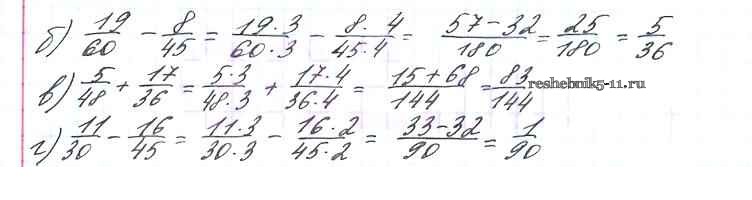 б) 19/60 - 8/45 = 19·3/60·3 - 8·4/45·4 = 57-32/180 = 25/180 = 5/36
в) 5/48 + 17/36 = 5·3/48·3 + 17·4/36·4 = 15+68/144 = 83/144 reshebnik5-11.ru
г) 11/30 - 16/45 = 11·3/30·3 - 16·2/45·2 = 33-32/90 = 1/90